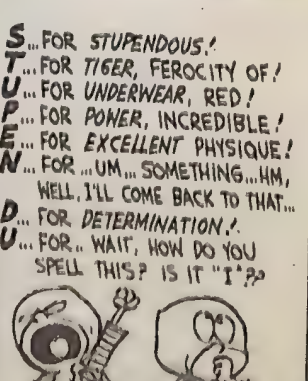 S... FOR STUPENDOUS!
T... FOR TIGER, FEROCITY OF!
U... FOR UNDERWEAR, RED!
P... FOR POWER, INCREDIBLE!
E... FOR EXCELLENT PHYSIQUE!
N... FOR ...UM... SOMETHING...HM,
WELL, I'LL COME BACK TO THAT...
D... FOR DETERMINATION!
U... FOR.. WAIT, HOW DO YOU
SPELL THIS? IS IT "I"??